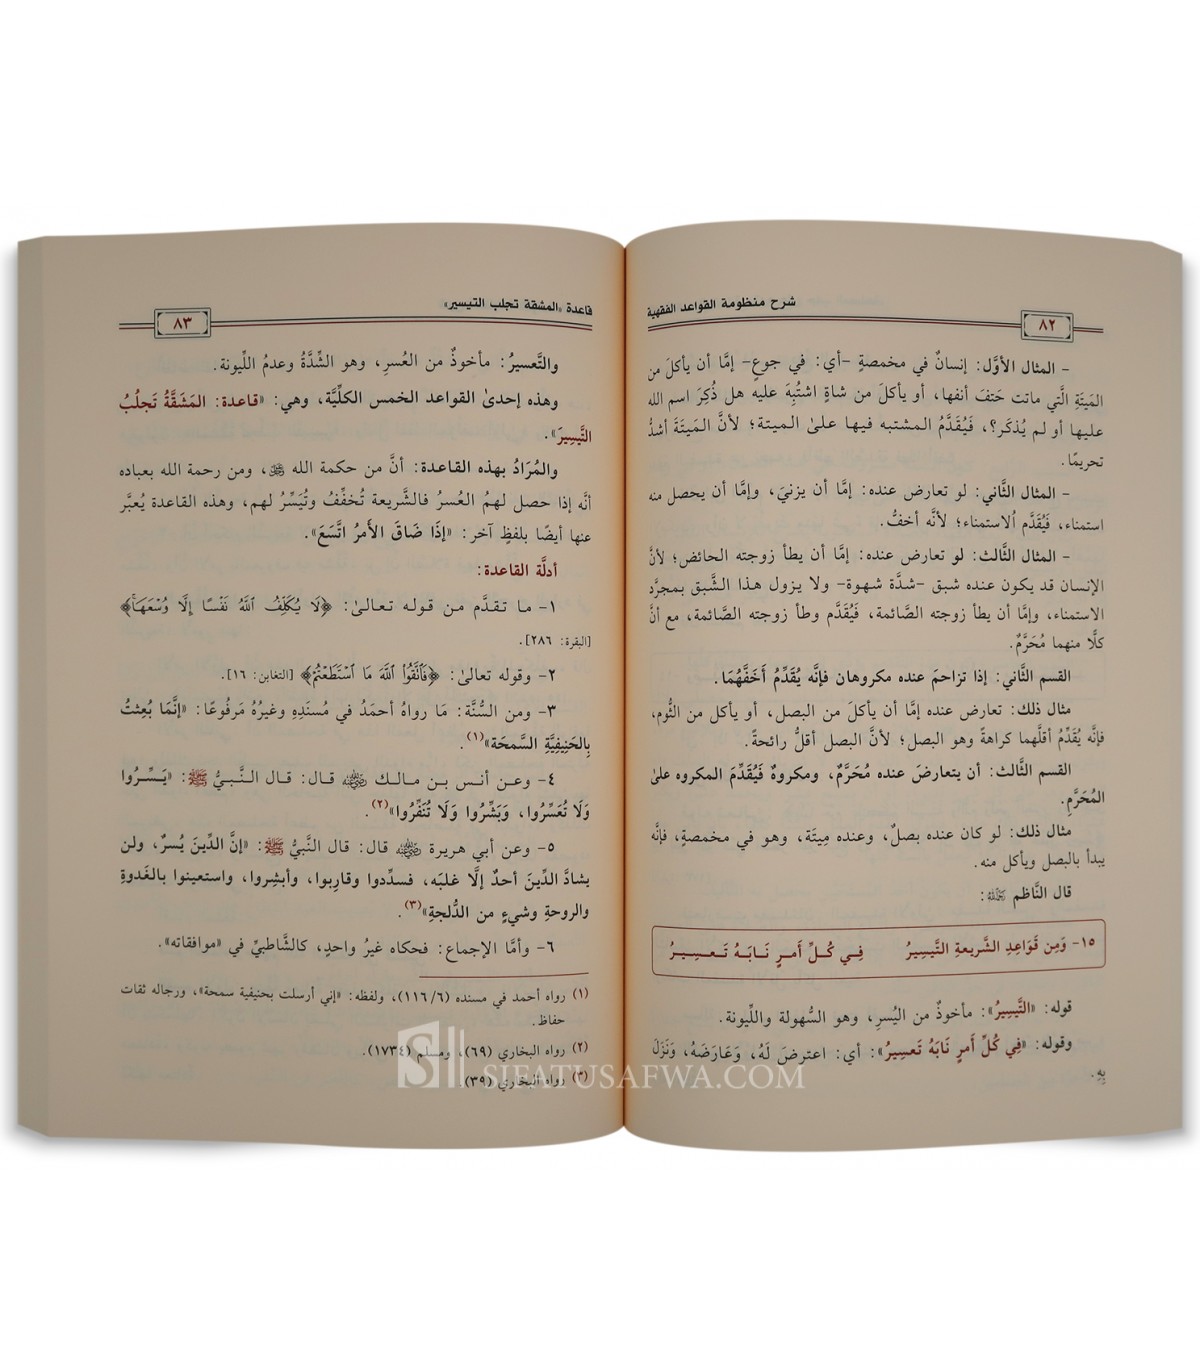 شرح منظومة القواعد الفقهية
٨٢
- المثال الأوَّل: إنسانٌ في مخمصةٍ -أي: في جوعٍ- إمَّا أن يأكلَ من
المَيتَةِ الَّتي ماتت حَتفَ أنفها، أو يأكلَ من شاةٍ اشتُبِهَ عليه هل ذُكِرَ اسم الله
عليها أو لم يُذكَر؟، فَيُقَدَّمُ المشتبه فيها علىٰ الميتة؛ لأنَّ المَيتَةَ أشدُّ
تحريمًا.
- المثال الثَّاني: لو تعارض عنده: إمَّا أن يزنيَ، وإمَّا أن يحصل منه
استمناء، فَيُقَدَّم الاستمناء؛ لأنَّه أخفُّ.
- المثال الثَّالث: لو تعارض عنده: إمَّا أن يطأ زوجته الحائض؛ لأنَّ
الإنسان قد يكون عنده شبق -شدَّة شهوة- ولا يزول هذا الشَّبق بمجرَّد
الاستمناء، وإمَّا أن يطأ زوجته الصَّائمة، فَيُقَدَّم وطأ زوجته الصَّائمة، مع أنَّ
كلًّا منهما مُحَرَّمٌ.
القسم الثَّاني: إذا تزاحمَ عنده مكروهان فإنَّه يُقَدِّمُ أَخَفَّهُمَا.
مثال ذلك: تعارض عنده إمَّا أن يأكلَ من البصل، أو يأكل من الثُّوم،
فإنَّه يُقَدِّمُ أقلَّهما كراهةً وهو البصل؛ لأنَّ البصل أقلُّ رائحةً.
القسم الثَّالث: أن يتعارضَ عنده مُحَرَّمٌ، ومكروهٌ فَيُقَدِّمَ المكروه علىٰ
المُحَرَّمِ.
مثال ذلك: لو كان عنده بصلٌ، وعنده مِيتَة، وهو في مخمصةٍ، فإنَّه
يبدأ بالبصل ويأكل منه.
قال النَّاظم رحمه الله:
١٥- وَمِن قَوَاعِدِ الشَّريعةِ التَّيسِيرُ فِي كُلِّ أَمرٍ نَابَهُ تَعسِيرُ
قوله: «التَّيسِيرُ»: مأخوذٌ من اليُسرِ، وهو السُّهولة واللِّيونة.
وقوله: «فِي كُلِّ أَمرٍ نَابَهُ تَعسِيرُ»: أي: اعترضَ لَهُ، وَعَارَضَهُ، وَنَزَلَ
بِهِ.
قاعدة «المشقة تجلب التيسير»
٨٣
والتَّعسيرُ: مأخوذٌ من العُسرِ، وهو الشِّدَّةُ وعدمُ اللِّيونة.
وهذه إحدىٰ القواعد الخمس الكلِّيَّة، وهي: «قاعدة: المَشَقَّةُ تَجلُبُ
التَّيسِيرَ».
والمُرَادُ بهذه القاعدة: أنَّ من حكمة الله ﷻ، ومن رحمة الله بعباده
أنَّه إذا حصل لهمُ العُسرُ فالشَّريعة تُخفِّفُ وتُيَسِّرُ لهم، وهذه القاعدة يُعبَّر
عنها أيضًا بلفظٍ آخر: «إذَا ضَاقَ الأَمرُ اتَّسَعَ».
أدلَّة القاعدة:
١- ما تقدَّم من قوله تعالىٰ: ﴿لَا يُكَلِّفُ ٱللَّهُ نَفْسًا إِلَّا وُسْعَهَا﴾
[البقرة: ٢٨٦].
٢- وقوله تعالىٰ: ﴿فَٱتَّقُوا۟ ٱللَّهَ مَا ٱسْتَطَعْتُمْ﴾ [التغابن: ١٦].
٣- ومن السُّنَّة: مَا رواهُ أحمَدُ في مُسنَدِهِ وغيرُهُ مَرفُوعًا: «إنَّمَا بُعِثتُ
بِالحَنِيفِيَّةِ السَّمحَة»(١).
٤- وعن أنس بن مالك رضي الله عنه قال: قال النَّبيُّ ﷺ: «يَسِّرُوا
وَلَا تُعَسِّرُوا، وَبَشِّرُوا وَلَا تُنَفِّرُوا»(٢).
٥- وعن أبي هريرة رضي الله عنه قال: قال النَّبيُّ ﷺ: «إنَّ الدِّينَ يُسرٌ، ولن
يشادَّ الدِّينَ أحدٌ إلَّا غلبَه، فسدِّدوا وقارِبوا، وأبشِروا، واستعينوا بالغَدوةِ
والروحةِ وشيءٍ من الدُّلجةِ»(٣).
٦- وأمَّا الإجماع: فحكاه غيرُ واحدٍ، كالشَّاطبيِّ في «موافقاته».
(١) رواه أحمد في مسنده (١١٦/٦)، ولفظه: «إني أرسلت بحنيفية سمحة»، ورجاله ثقات
حفاظ.
(٢) رواه البخاري (٦٩)، ومسلم (١٧٣٤).
(٣) رواه البخاري (٣٩).
SIFATUSAFWA.COM